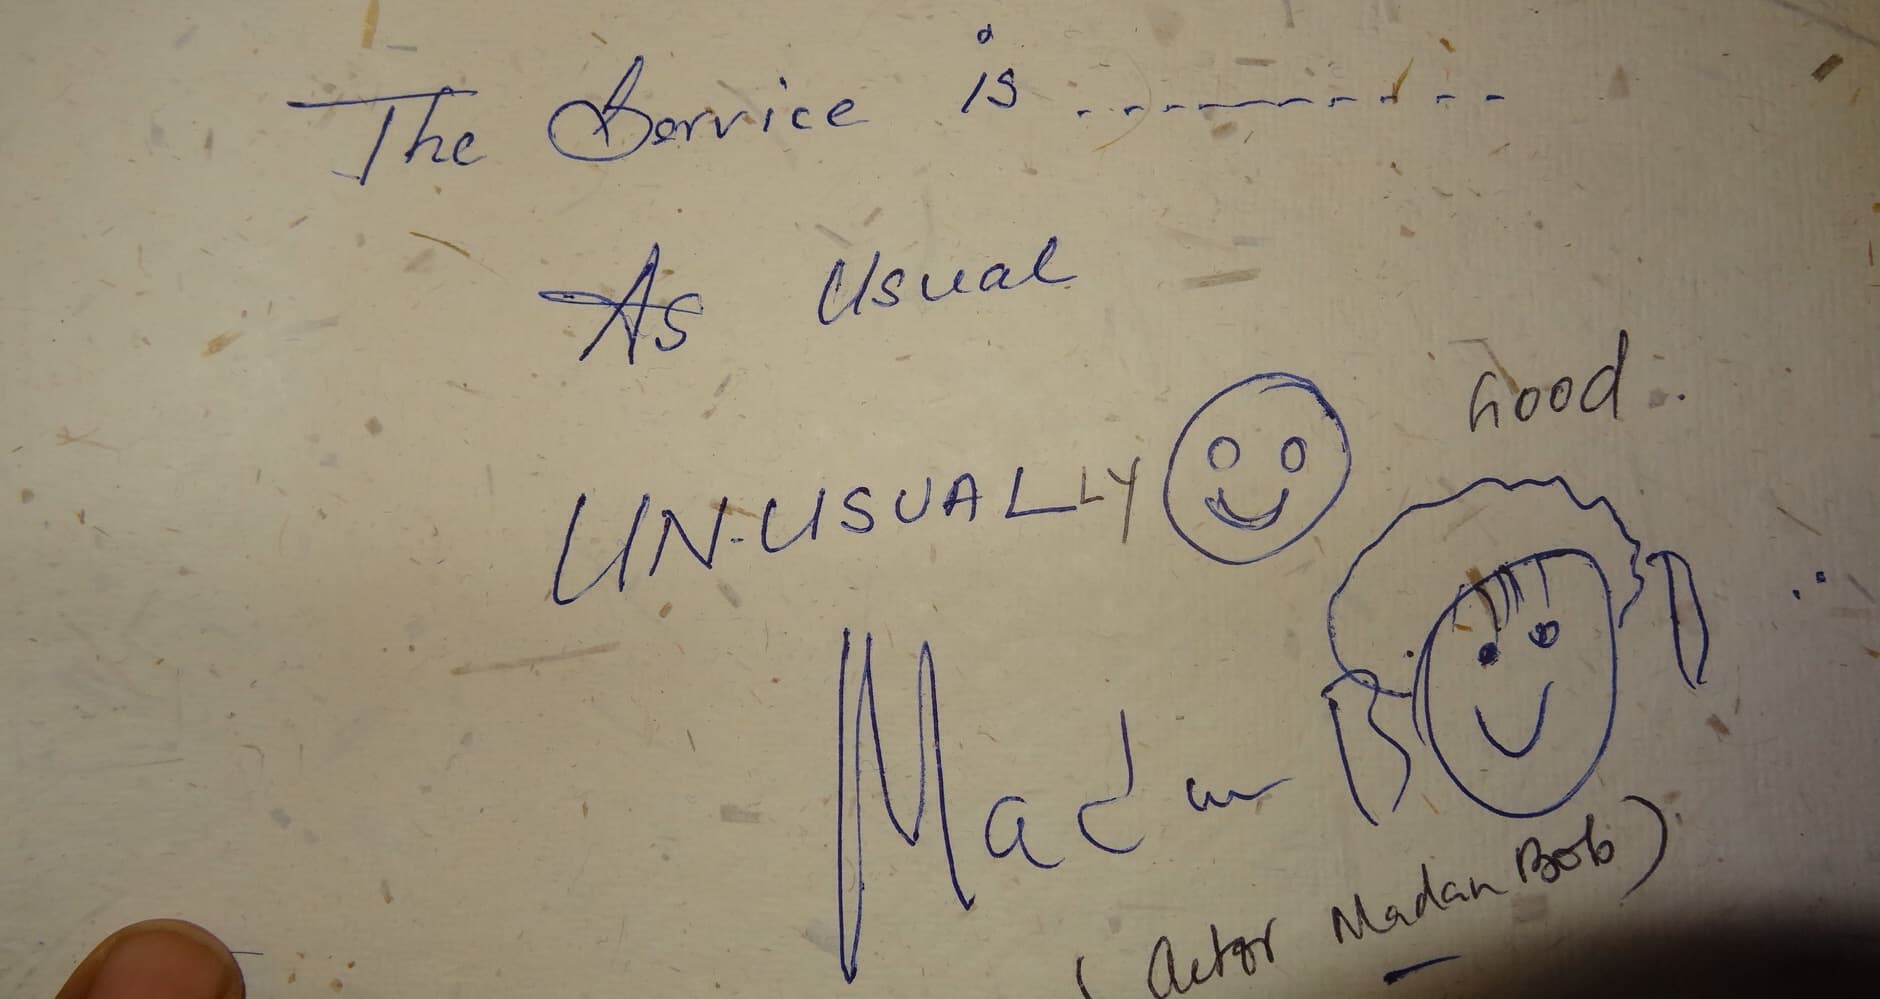 The Service is ------------
As Usual
UN-USUALLY Good.
Madan
(Actor Madan Bob)